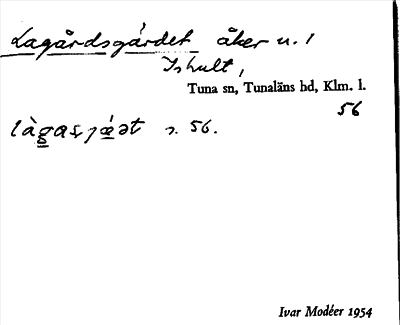 Lagårdsgärdet åker u. 1
Ishult,
Tuna sn, Tunaläns hd, Klm. l.
56
s. 56.
Ivar Modéer 1954